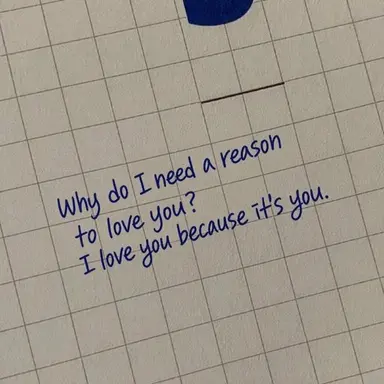 Why do I need a reason
to love you?
I love you because it's you.